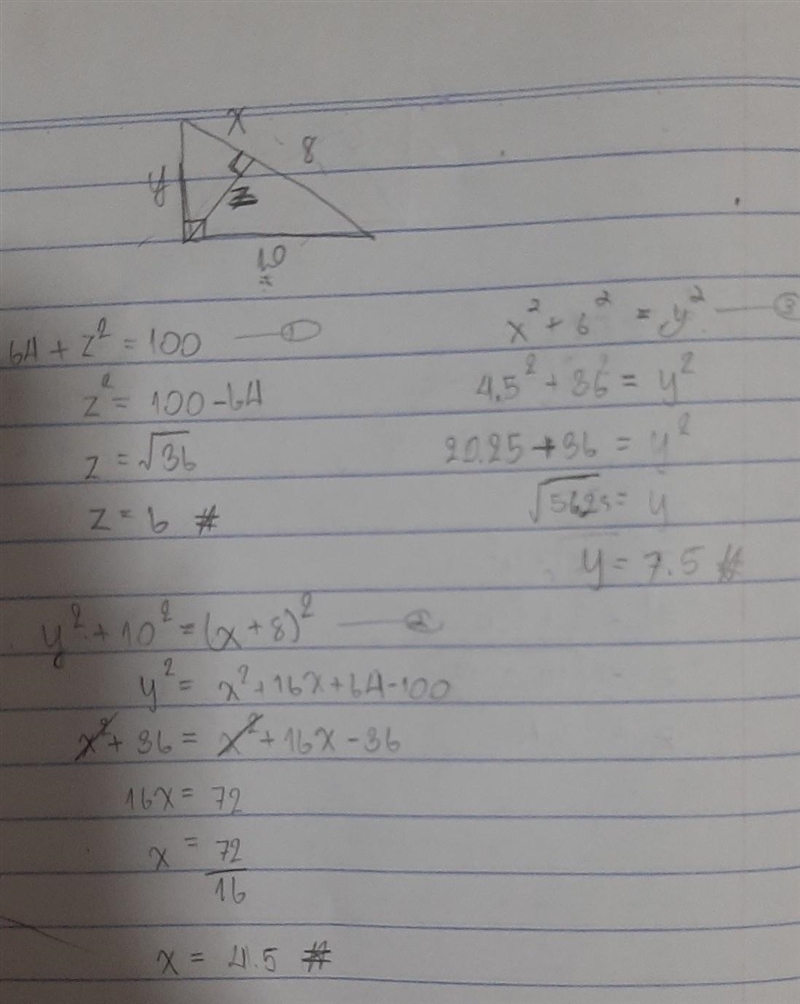 x
8
y
z
10
64 + z² = 100 —①
z² = 100 - 64
z = √36
z = 6 #
x² + 6² = y² —③
4.5² + 36 = y²
20.25 + 36 = y²
√56.25 = y
y = 7.5 #
y² + 10² = (x + 8)² —②
y² = x² + 16x + 64 - 100
x² + 36 = x² + 16x - 36
16x = 72
x = 72/16
x = 4.5 #